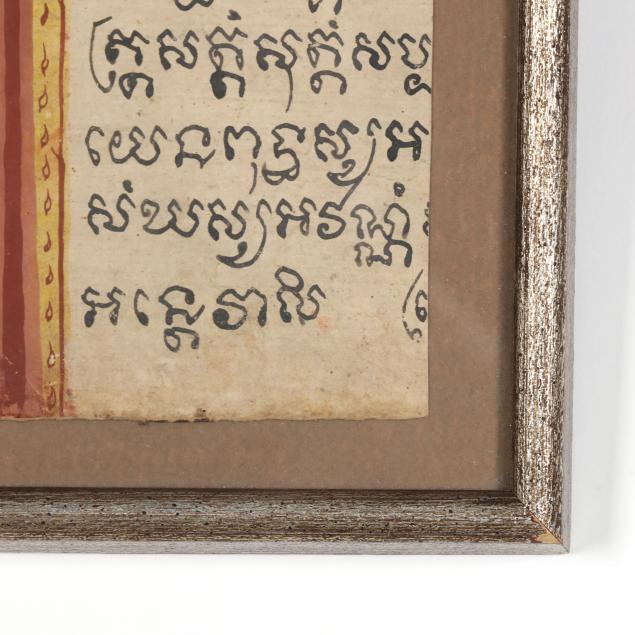 ត្រសត្តំសុត្តំសប្ប
យេនពុទ្ធស្សអ
សំឃស្សអវណ្ណំ
អន្តេវាសិ